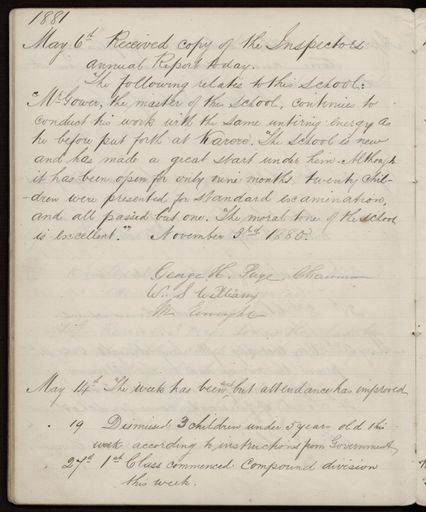 1881
May 6th Received copy of the Inspectors
annual Report today.
The following relates to this school:
"Mr Gower, the master of this school, continues to
conduct his work with the same untiring energy as
he before put forth at Karoro. The school is new
and has made a great start under him. Although
it has been open for only nine months, twenty chil-
-dren were presented for standard examination,
and all passed but one. The moral tone of the school
is excellent." November 3rd 1880.
George H. Page, Chairman
W. S. Williams
May 14th The week has been wet but attendance has improved
" 19 Dismissed 3 children under 5 years old this
week according to instructions from Government
" 27th 1st Class commenced Compound division
this week.